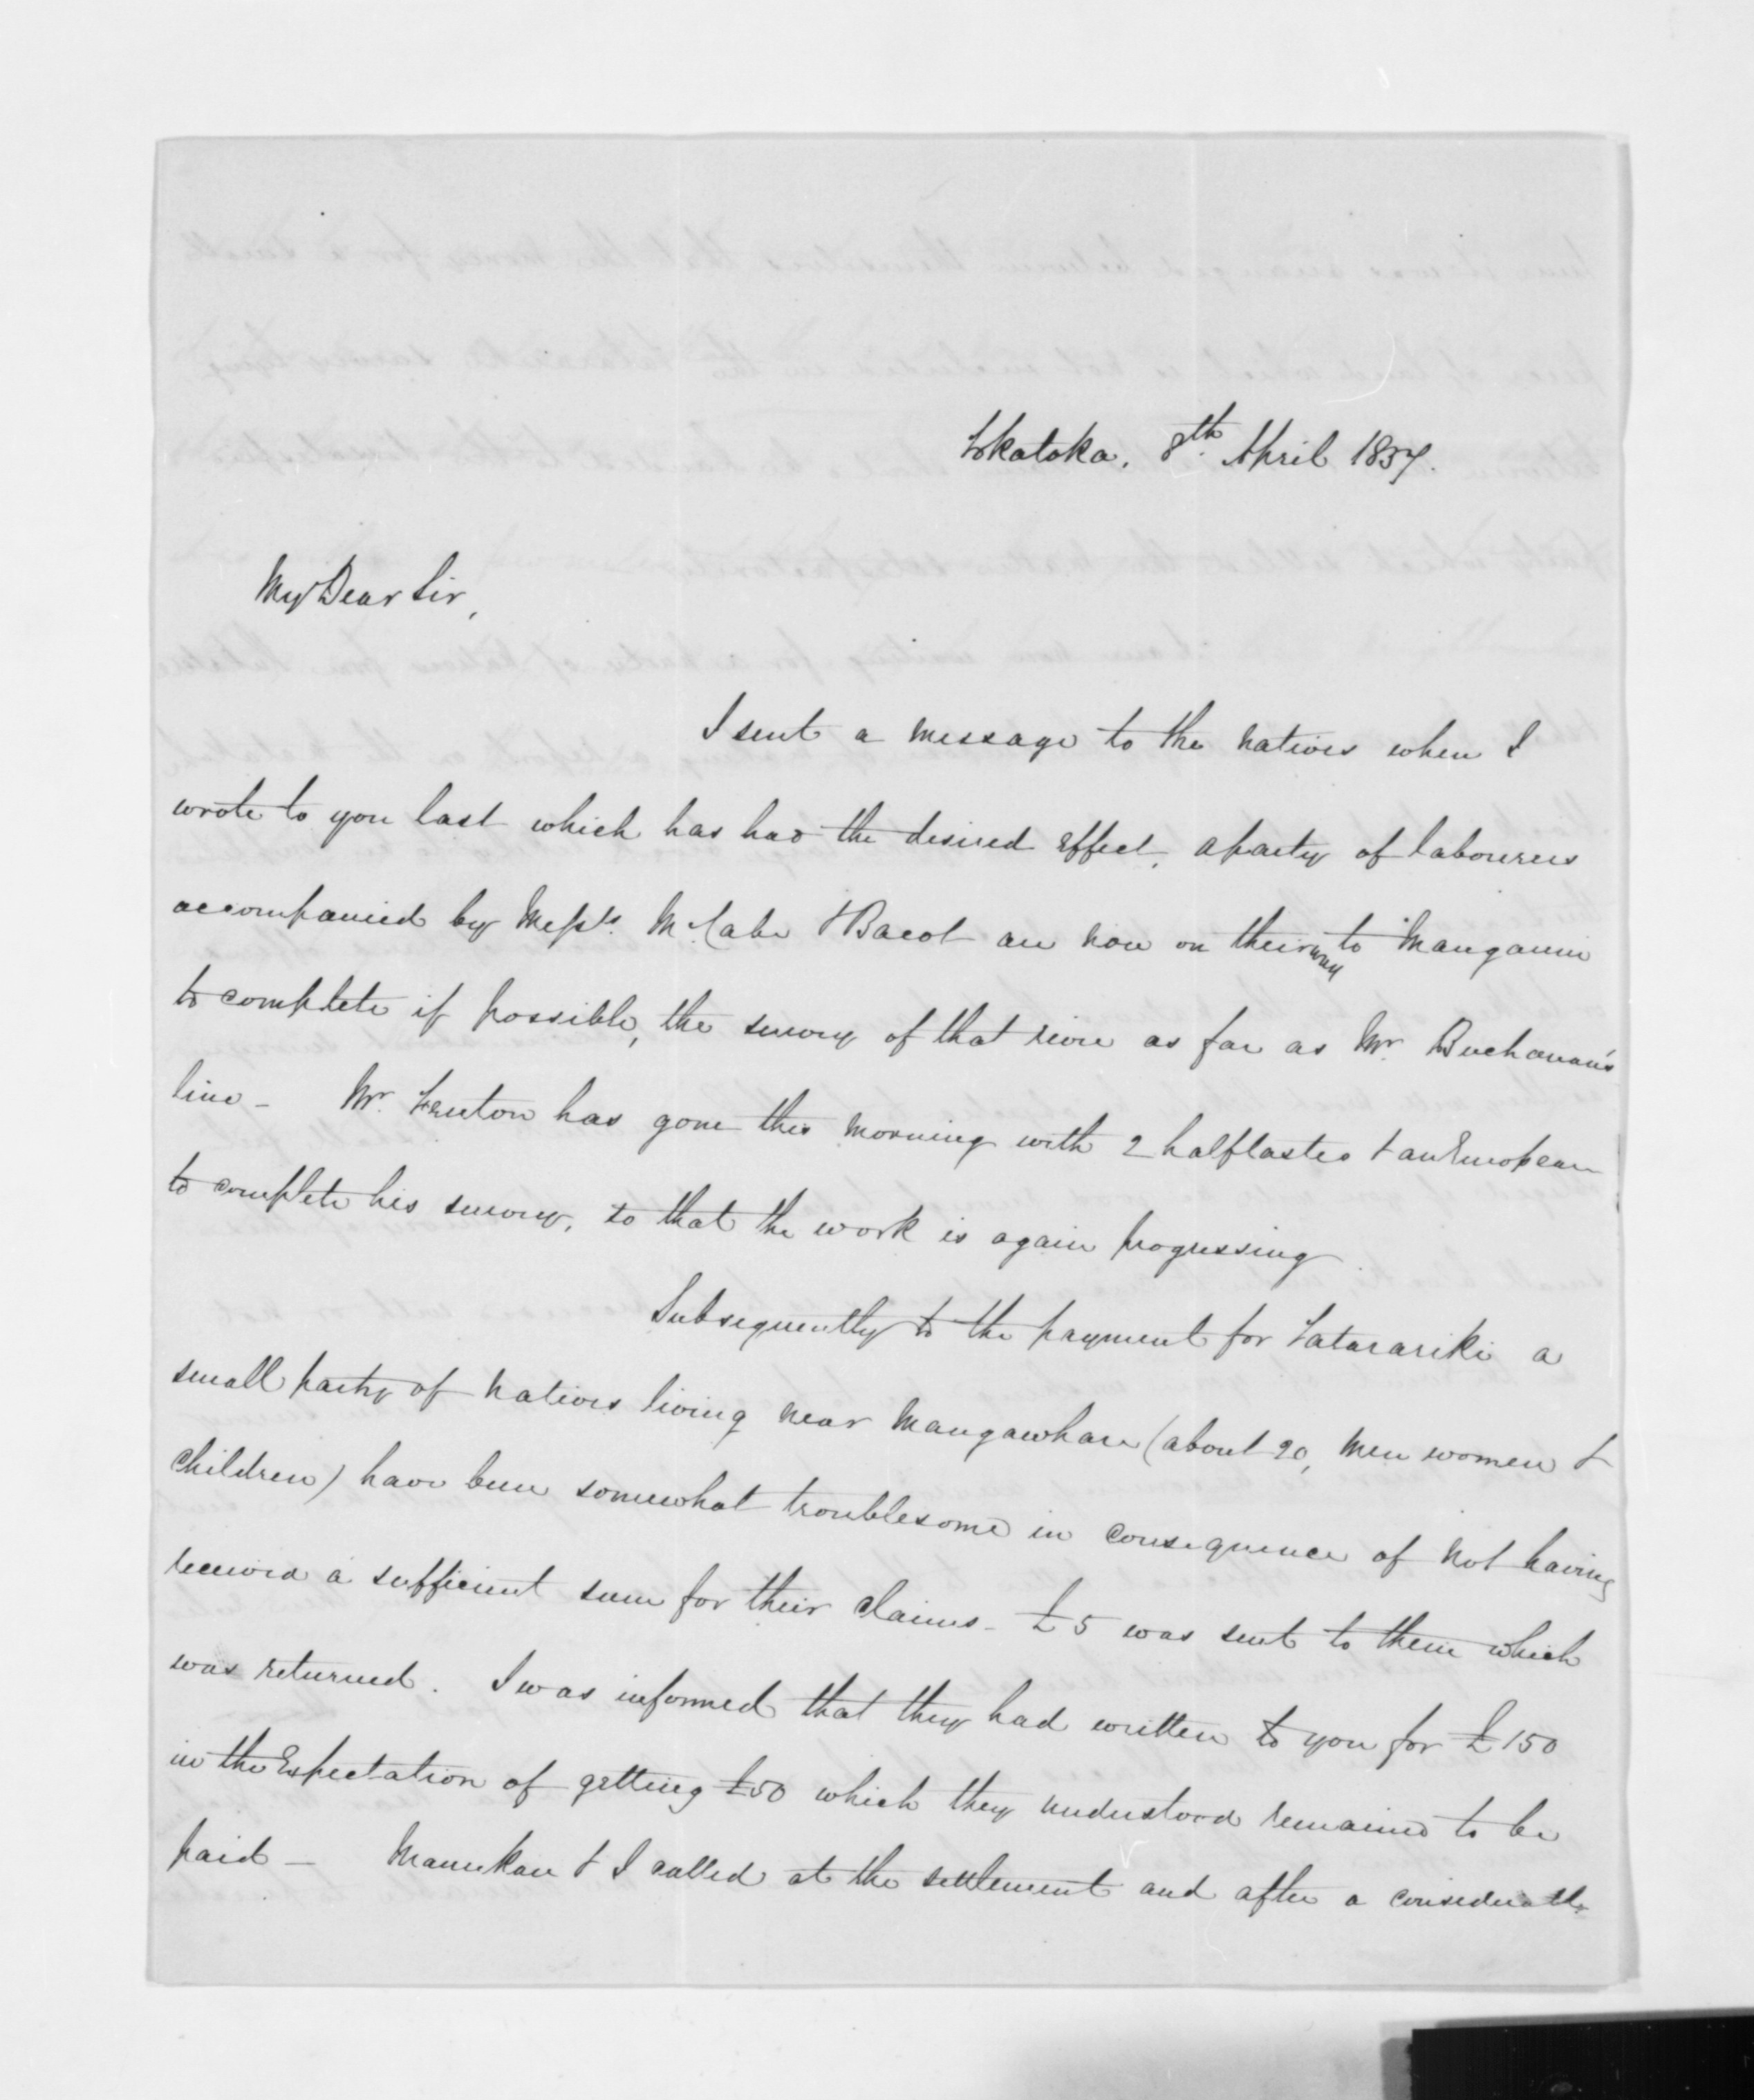 Tokatoka. 8th April 1857.
My Dear Sir,
I sent a message to the natives when I
wrote to you last which has had the desired effect, a party of labourers
accompanied by Messrs. McCabe & Bacot are now on their way to Manganui
to complete if possible, the survey of that river as far as Mr. Buchanan's
line - Mr. Fenton has gone this morning with 2 halfcastes & an European
to complete his survey, so that the work is again progressing.
Subsequently to the payment for Tatarariki a
small party of natives living near Mangawhare (about 20, men women &
children) have been somewhat troublesome in consequence of not having
received a sufficient sum for their claims - £5 was sent to them which
was returned. I was informed that they had written to you for £150
in the expectation of getting £50 which they understood remained to be
paid - Manukau & I called at the settlement and after a considerable